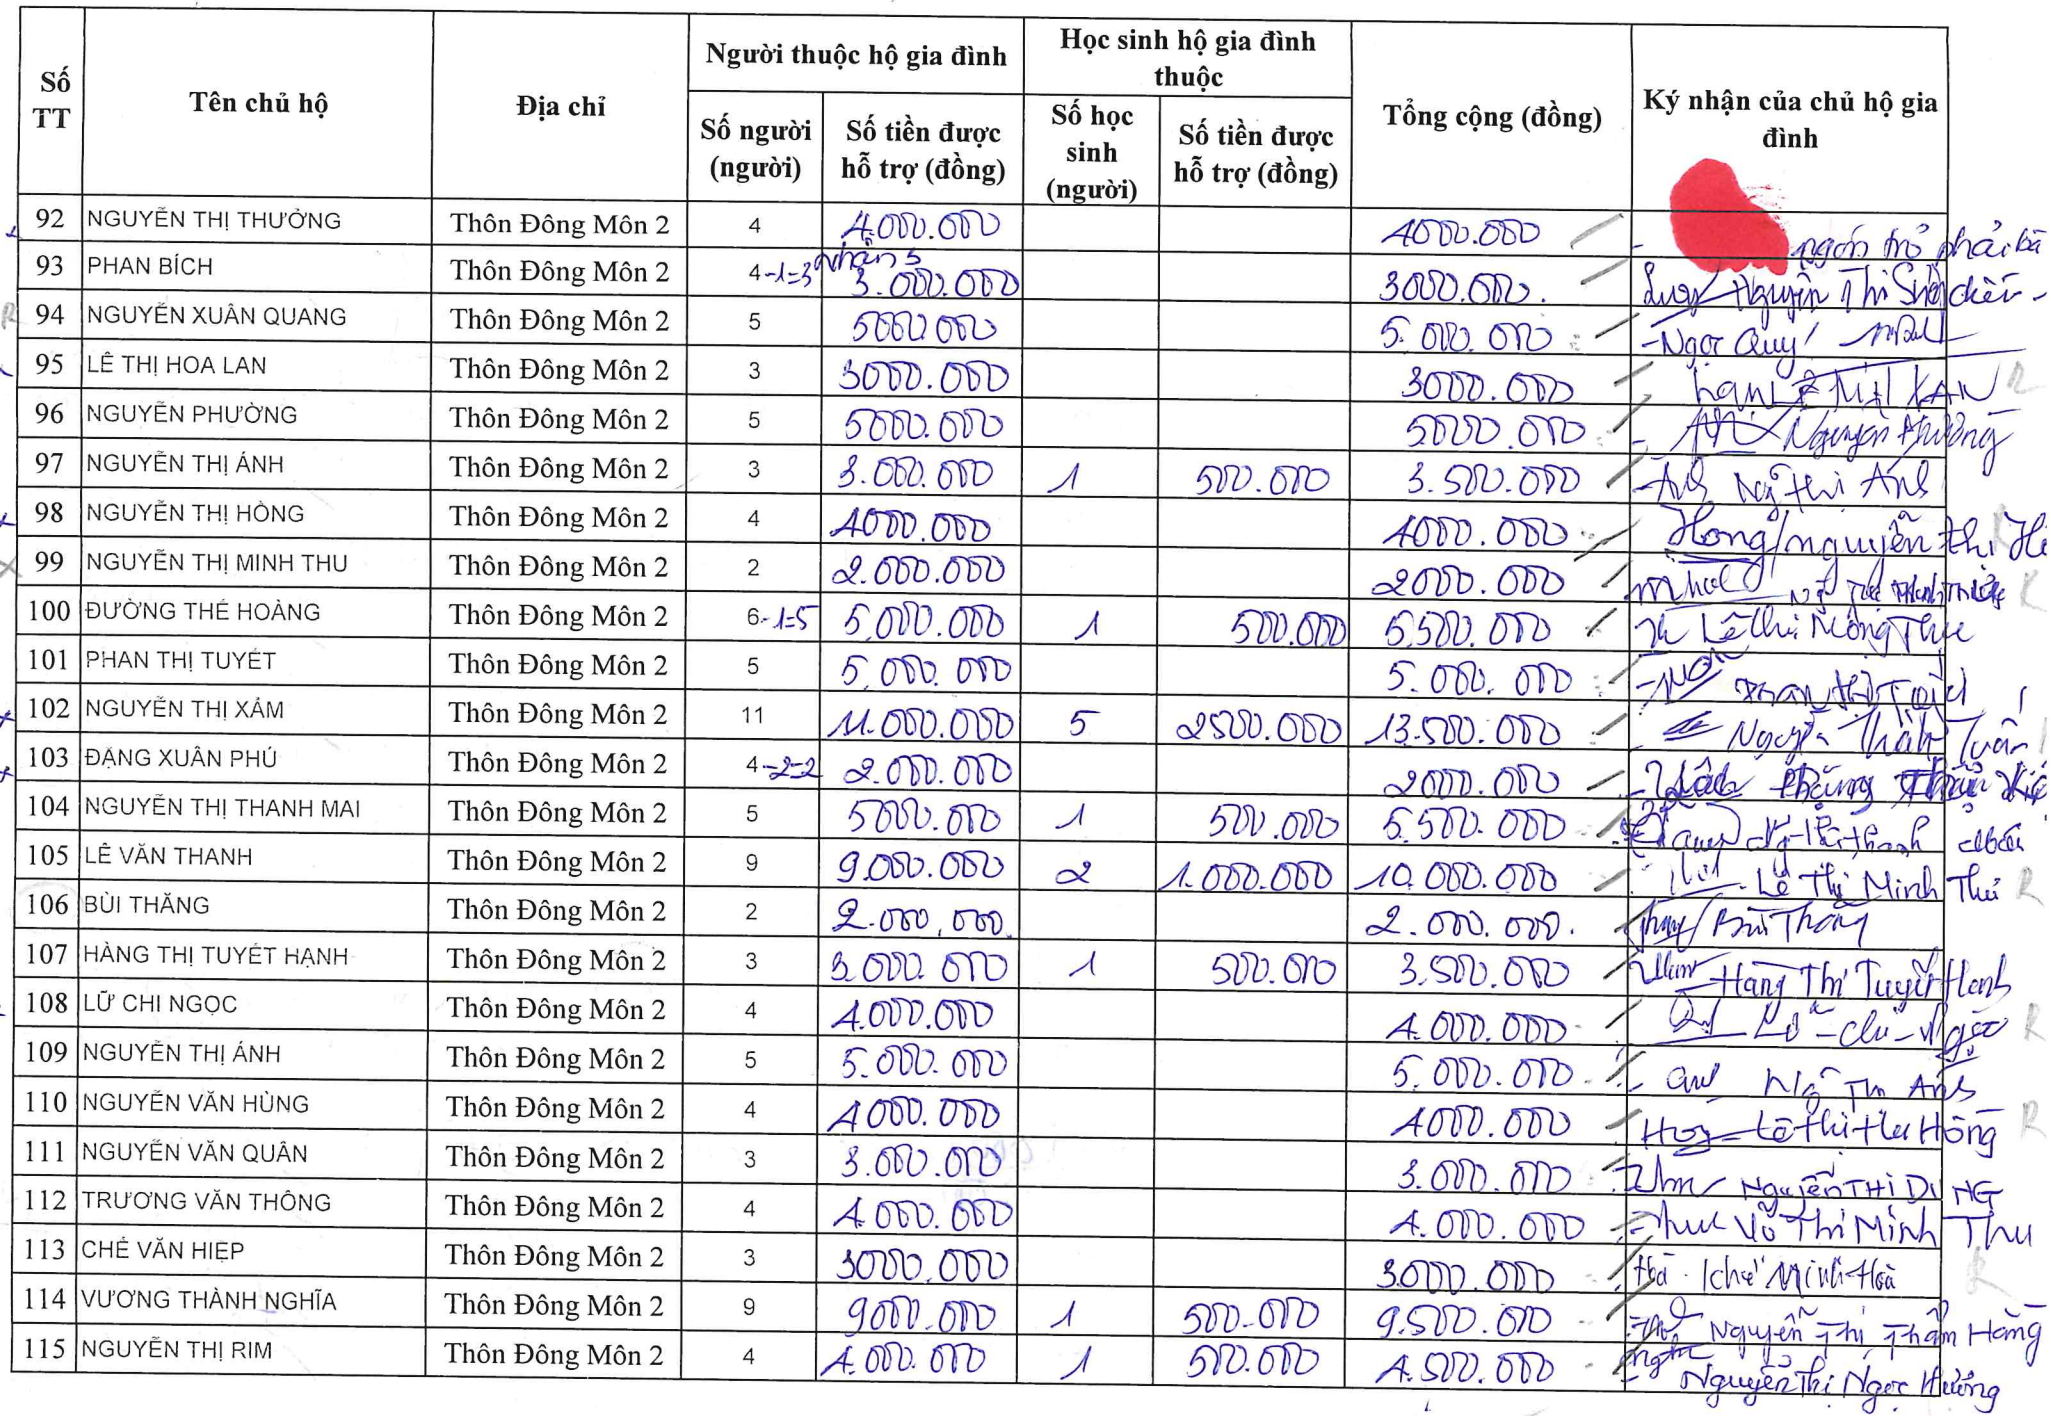 Số TT Tên chủ hộ Địa chỉ Người thuộc hộ gia đình Học sinh hộ gia đình thuộc Tổng cộng (đồng) Ký nhận của chủ hộ gia đình
Số người (người) Số tiền được hỗ trợ (đồng) Số học sinh (người) Số tiền được hỗ trợ (đồng)
92 NGUYỄN THỊ THƯỞNG Thôn Đông Môn 2 4 4.000.000 4000.000 ngón trỏ phải bà
93 PHAN BÍCH Thôn Đông Môn 2 4-1=3 nhận 3 3.000.000 3000.000. Nguyễn Thị
94 NGUYỄN XUÂN QUANG Thôn Đông Môn 2 5 5000.000 5.000.000 Ngọc Quý
95 LÊ THỊ HOA LAN Thôn Đông Môn 2 3 3000.000 3000.000
96 NGUYỄN PHƯỜNG Thôn Đông Môn 2 5 5000.000 5000.000 Nguyễn Phường
97 NGUYỄN THỊ ÁNH Thôn Đông Môn 2 3 3.000.000 1 500.000 3.500.000 Ánh Ng Thị Ánh
98 NGUYỄN THỊ HÒNG Thôn Đông Môn 2 4 4000.000 4000.000 Hồng nguyễn thị
99 NGUYỄN THỊ MINH THU Thôn Đông Môn 2 2 2.000.000 2000.000
100 ĐƯỜNG THẾ HOÀNG Thôn Đông Môn 2 6-1=5 5.000.000 1 500.000 5.500.000 Lê Thị Mộng Thu
101 PHAN THỊ TUYẾT Thôn Đông Môn 2 5 5.000.000 5.000.000 Phan thị
102 NGUYỄN THỊ XẢM Thôn Đông Môn 2 11 11.000.000 5 2500.000 13.500.000 Nguyễn Thanh Tuấn
103 ĐẶNG XUÂN PHÚ Thôn Đông Môn 2 4-2=2 2.000.000 2000.000
104 NGUYỄN THỊ THANH MAI Thôn Đông Môn 2 5 5000.000 1 500.000 5.500.000
105 LÊ VĂN THANH Thôn Đông Môn 2 9 9.000.000 2 1.000.000 10.000.000 Lê Thị Minh Thư
106 BÙI THĂNG Thôn Đông Môn 2 2 2.000.000. 2.000.000. Bùi Thăng
107 HÀNG THỊ TUYẾT HẠNH Thôn Đông Môn 2 3 3.000.000 1 500.000 3.500.000 Hàng Thị Tuyết Hạnh
108 LỮ CHI NGỌC Thôn Đông Môn 2 4 4.000.000 4.000.000 Lữ-chi-Ngọc
109 NGUYỄN THỊ ÁNH Thôn Đông Môn 2 5 5.000.000 5.000.000 Ánh
110 NGUYỄN VĂN HÙNG Thôn Đông Môn 2 4 4000.000 4000.000 Lê Thị Thu Hồng
111 NGUYỄN VĂN QUÂN Thôn Đông Môn 2 3 3.000.000 3.000.000 NGUYỄN THỊ DUNG
112 TRƯƠNG VĂN THÔNG Thôn Đông Môn 2 4 4.000.000 4.000.000 Võ Thị Minh THU
113 CHẾ VĂN HIỆP Thôn Đông Môn 2 3 3000.000 3.000.000 Hòa Chế Minh Hòa
114 VƯƠNG THÀNH NGHĨA Thôn Đông Môn 2 9 9000.000 1 500.000 9.500.000 Nguyễn Thị Thẩm Hằng
115 NGUYỄN THỊ RIM Thôn Đông Môn 2 4 4.000.000 1 500.000 4.500.000 Nguyễn Thị Ngọc Hường